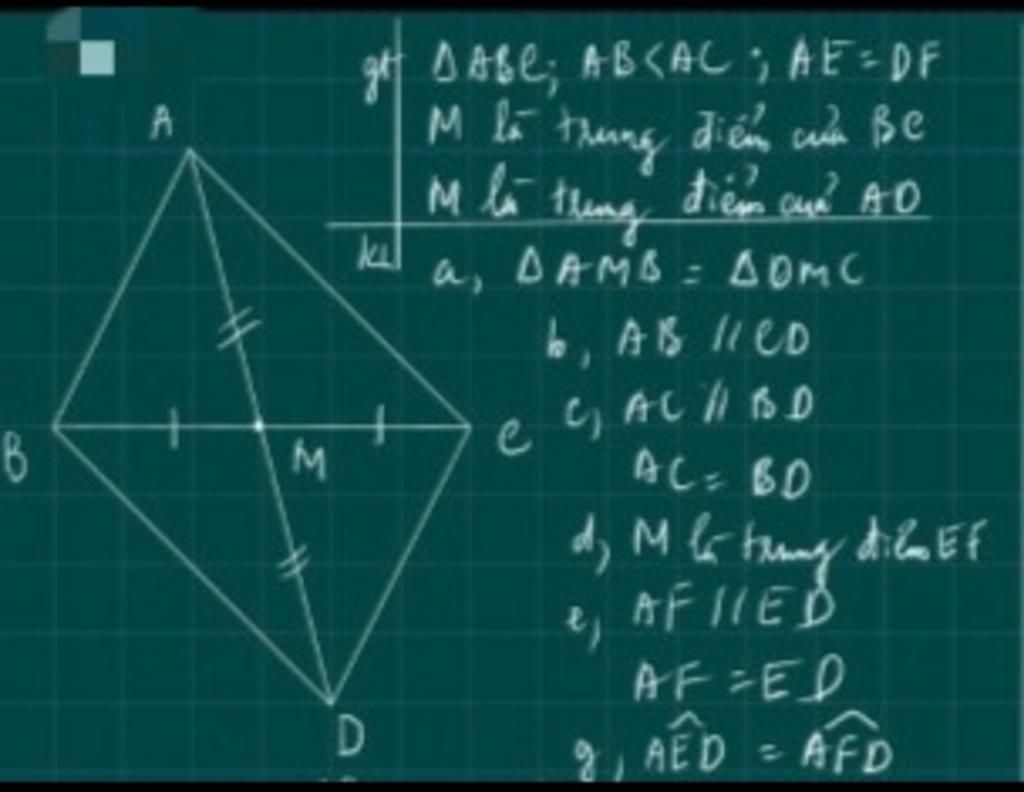 gt ΔABC; AB<AC; AE=DF
M là trung điểm của BC
M là trung điểm của AD
kl a, ΔAMB = ΔDMC
b, AB // CD
c, AC // BD
AC = BD
d, M là trung điểm EF
e, AF // ED
AF = ED
g, \widehat{AED} = \widehat{AFD}
A
B
M
C
D